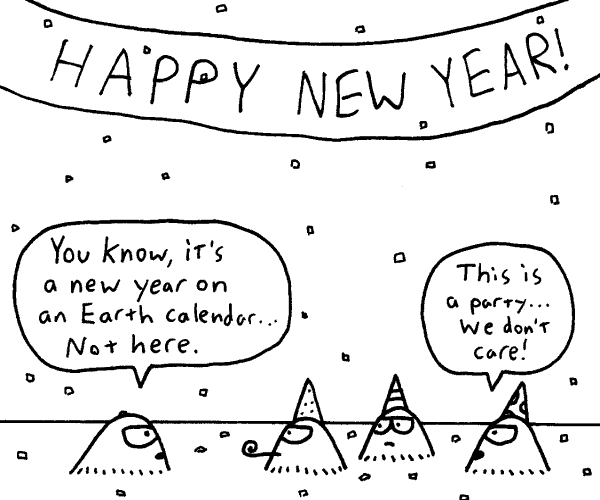 HAPPY NEW YEAR!
You know, it's
a new year on
an Earth calendar...
Not here.
This is
a party...
We don't
care!